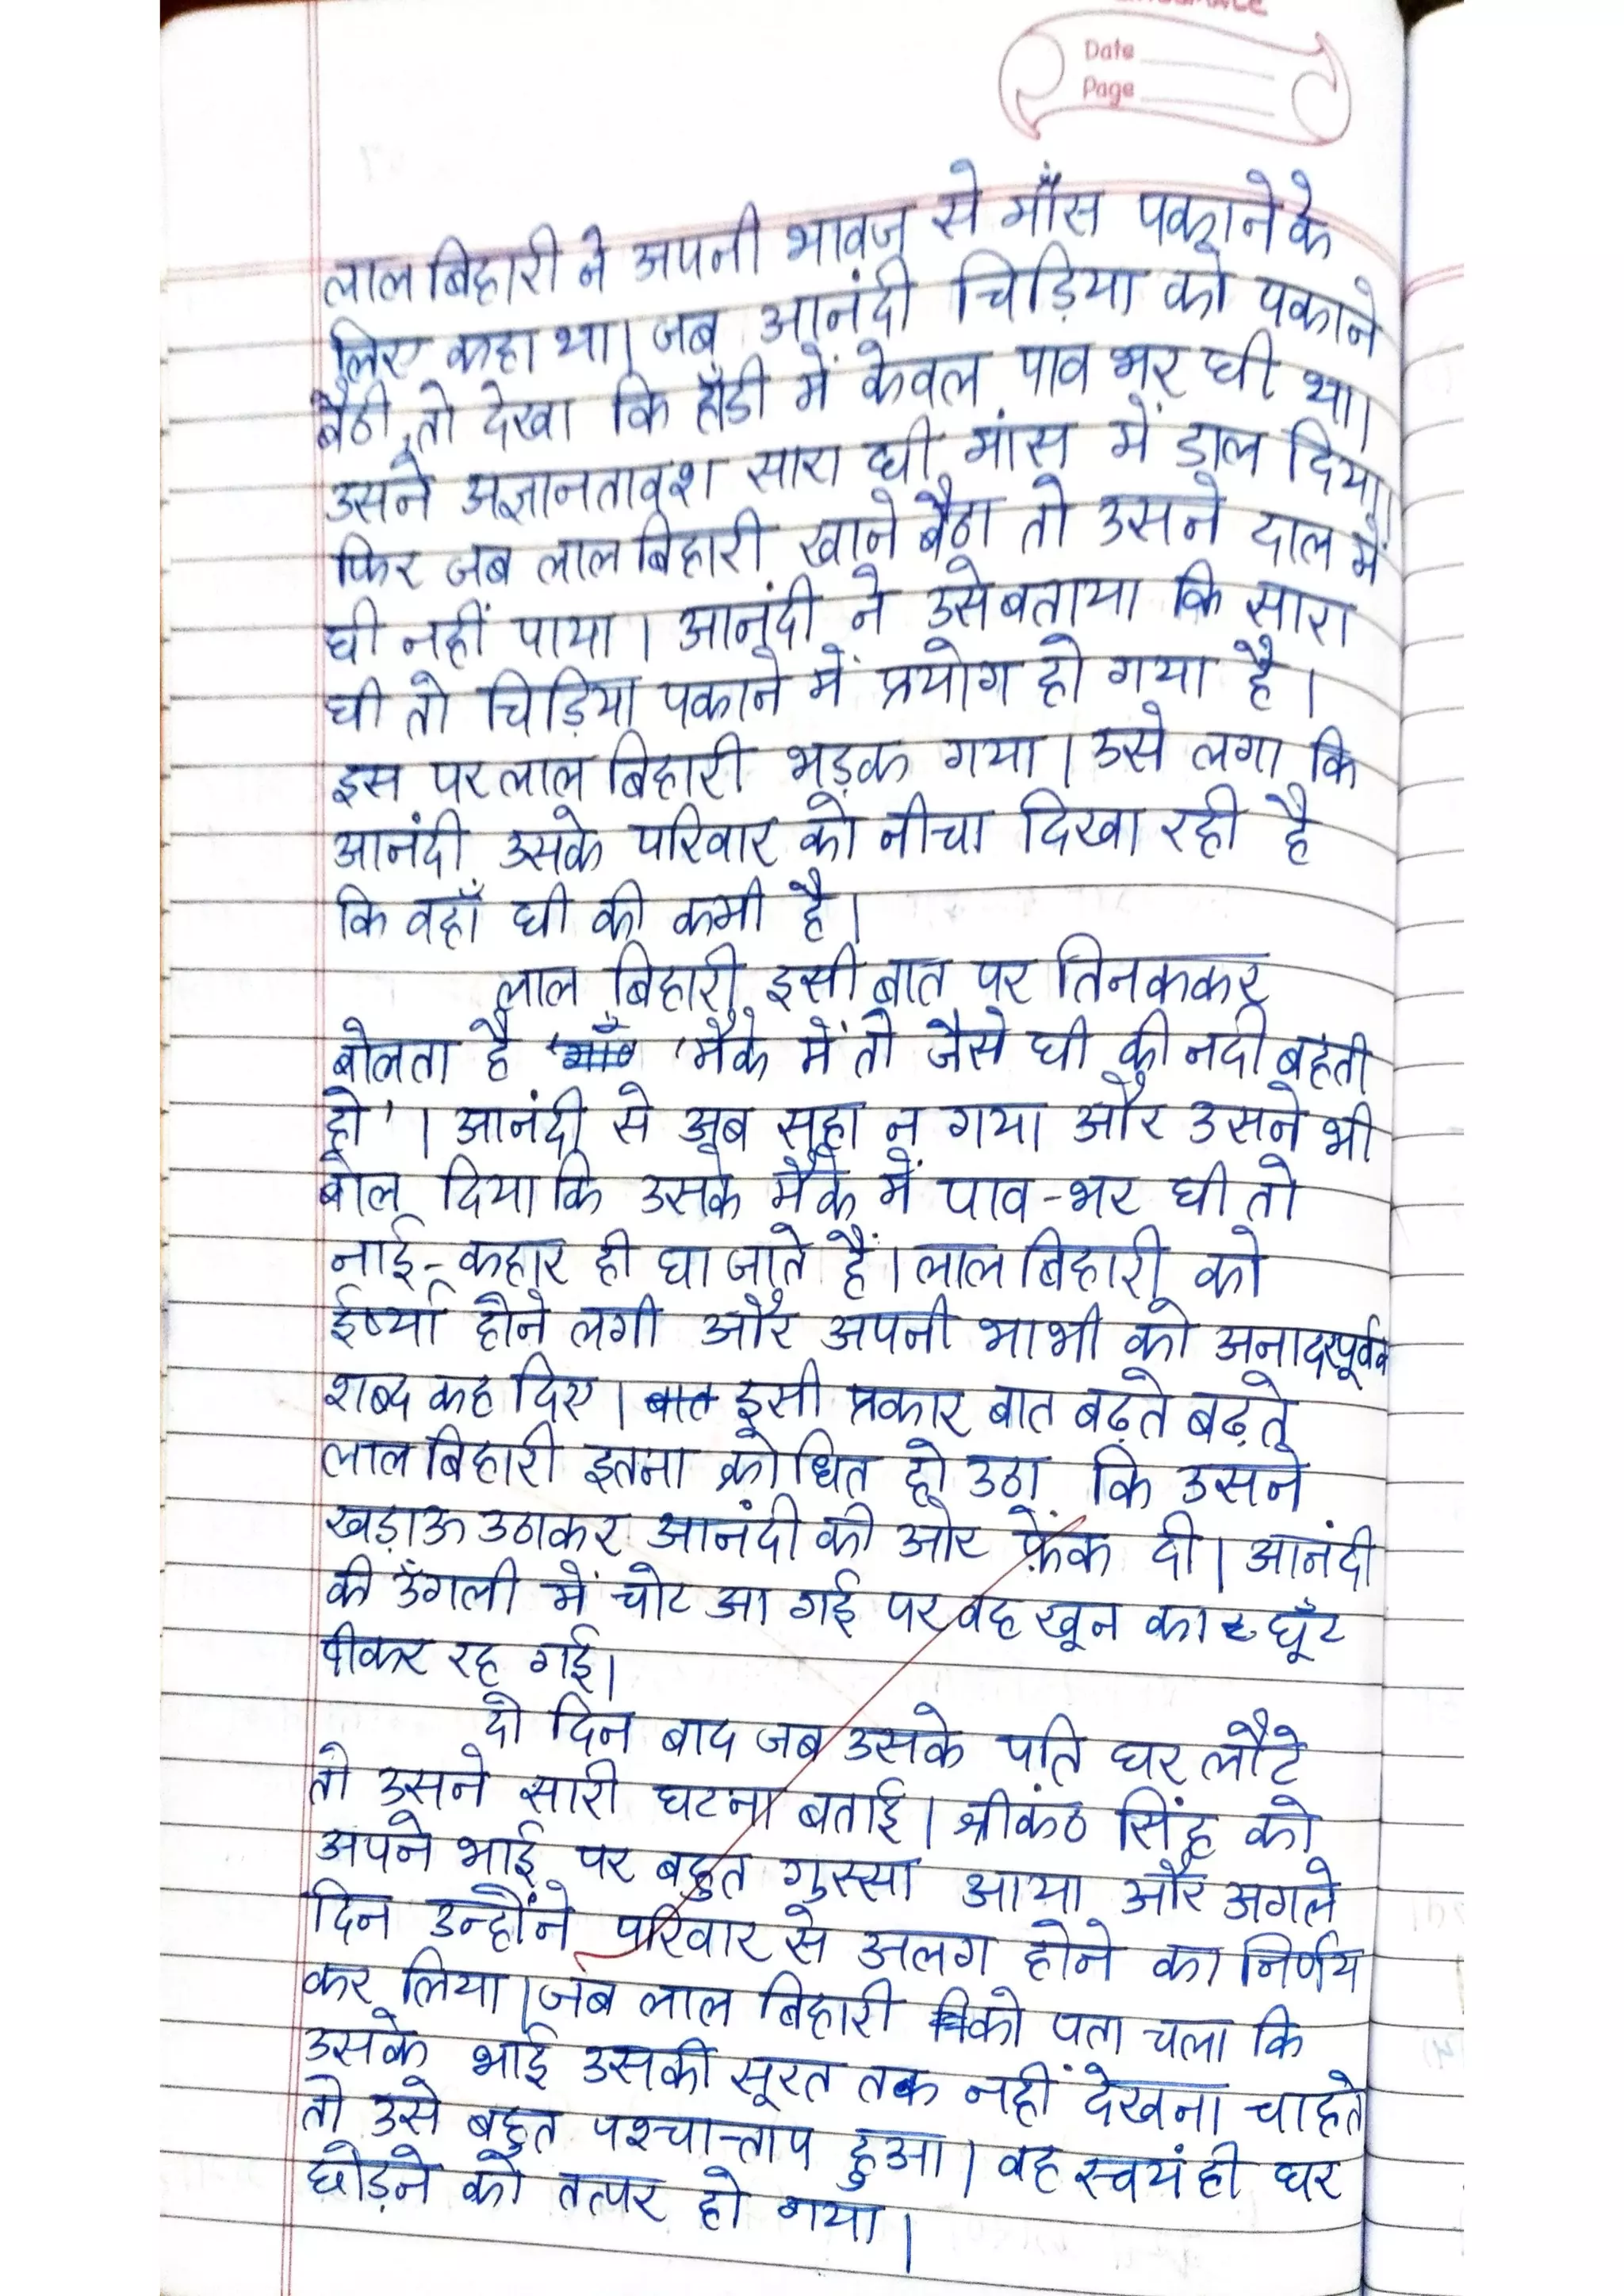 Date
Page
लाल बिहारी ने अपनी भावज से माँस पकाने के
लिए कहा था। जब आनंदी चिड़िया को पकाने
बैठी, तो देखा कि हाँडी में केवल पाव भर घी था।
उसने अज्ञानतावश सारा घी मांस में डाल दिया।
फिर जब लाल बिहारी खाने बैठा तो उसने दाल में
घी नहीं पाया। आनंदी ने उसे बताया कि सारा
घी तो चिड़िया पकाने में प्रयोग हो गया है।
इस पर लाल बिहारी भड़क गया। उसे लगा कि
आनंदी उसके परिवार को नीचा दिखा रही है
कि वहाँ घी की कमी है।
लाल बिहारी इसी बात पर तिनककर
बोलता है 'मैके में तो जैसे घी की नदी बहती
हो'। आनंदी से अब सहा न गया और उसने भी
बोल दिया कि उसके मैके में पाव-भर घी तो
नाई-कहार ही घा जाते हैं। लाल बिहारी को
ईर्ष्या होने लगी और अपनी भाभी को अनादरपूर्वक
शब्द कह दिए। बात इसी प्रकार बात बढ़ते बढ़ते
लाल बिहारी इतना क्रोधित हो उठा कि उसने
खड़ाऊ उठाकर आनंदी की ओर फेंक दी। आनंदी
की उँगली में चोट आ गई पर वह खून का घूँट
पीकर रह गई।
दो दिन बाद जब उसके पति घर लौटे
तो उसने सारी घटना बताई। श्रीकंठ सिंह को
अपने भाई पर बहुत गुस्सा आया और अगले
दिन उन्होंने परिवार से अलग होने का निर्णय
कर लिया। जब लाल बिहारी को पता चला कि
उसके भाई उसकी सूरत तक नहीं देखना चाहते
तो उसे बहुत पश्चात्ताप हुआ। वह स्वयं ही घर
छोड़ने को तत्पर हो गया।